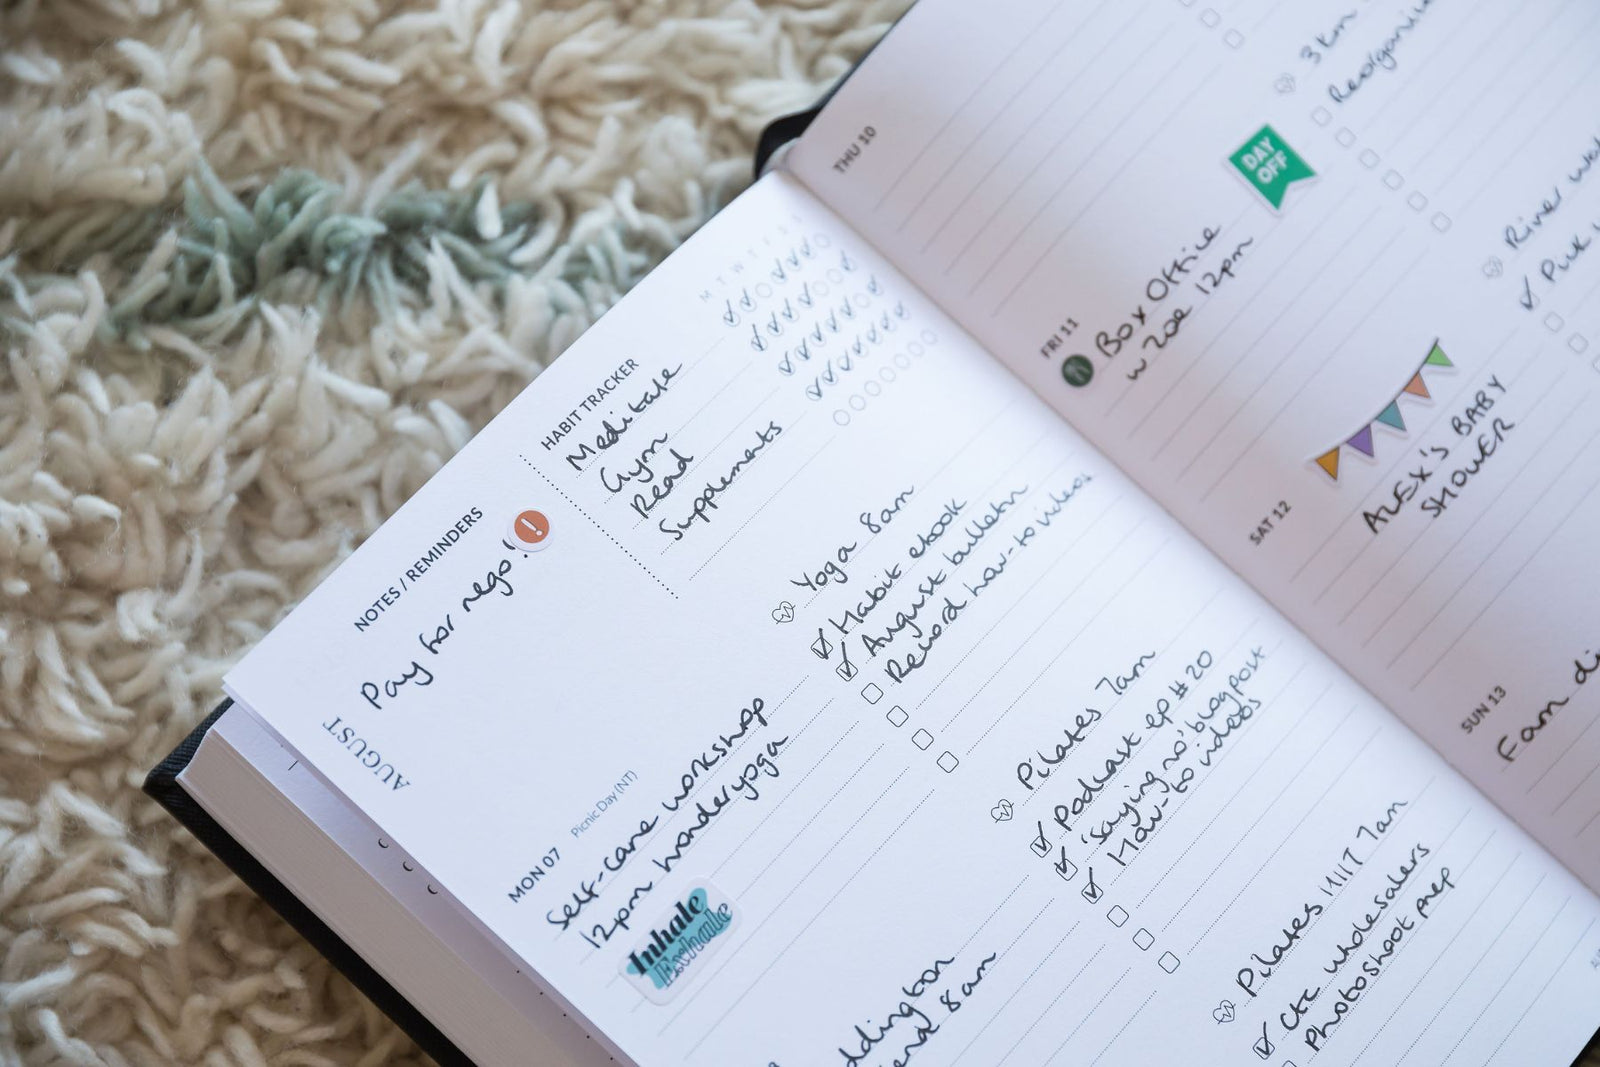 AUGUST
NOTES / REMINDERS
Pay for rego!
!
HABIT TRACKER
M T W T F S S
Meditate
Gym
Read
Supplements
MON 07
Picnic Day (NT)
Self-care workshop
12pm wonderyoga
Inhale
Exhale
Yoga 8am
Habit ebook
August bulletin
Record how-to videos
8am
Pilates 7am
Podcast ep #20
'Saying no' blogpost
How-to videos
Pilates HIIT 7am
Ctc wholesalers
Photoshoot prep
THU 10
3km
Reorganise
FRI 11
DAY
OFF
Box Office
w Zoe 12pm
River
Pick
SAT 12
ALEX'S BABY
SHOWER
SUN 13
Fam